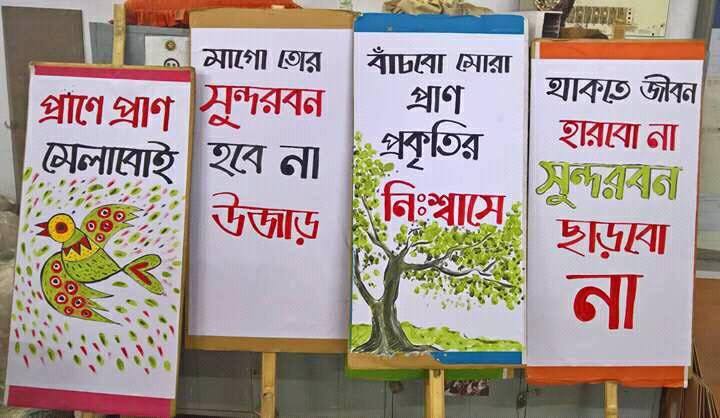 প্রাণে প্রাণ
মেলাবোই
মাগো তোর
সুন্দরবন
হবে না
উজাড়
বাঁচবো মোরা
প্রাণ
প্রকৃতির
নিঃশ্বাসে
থাকতে জীবন
হারবো না
সুন্দরবন
ছাড়বো
না